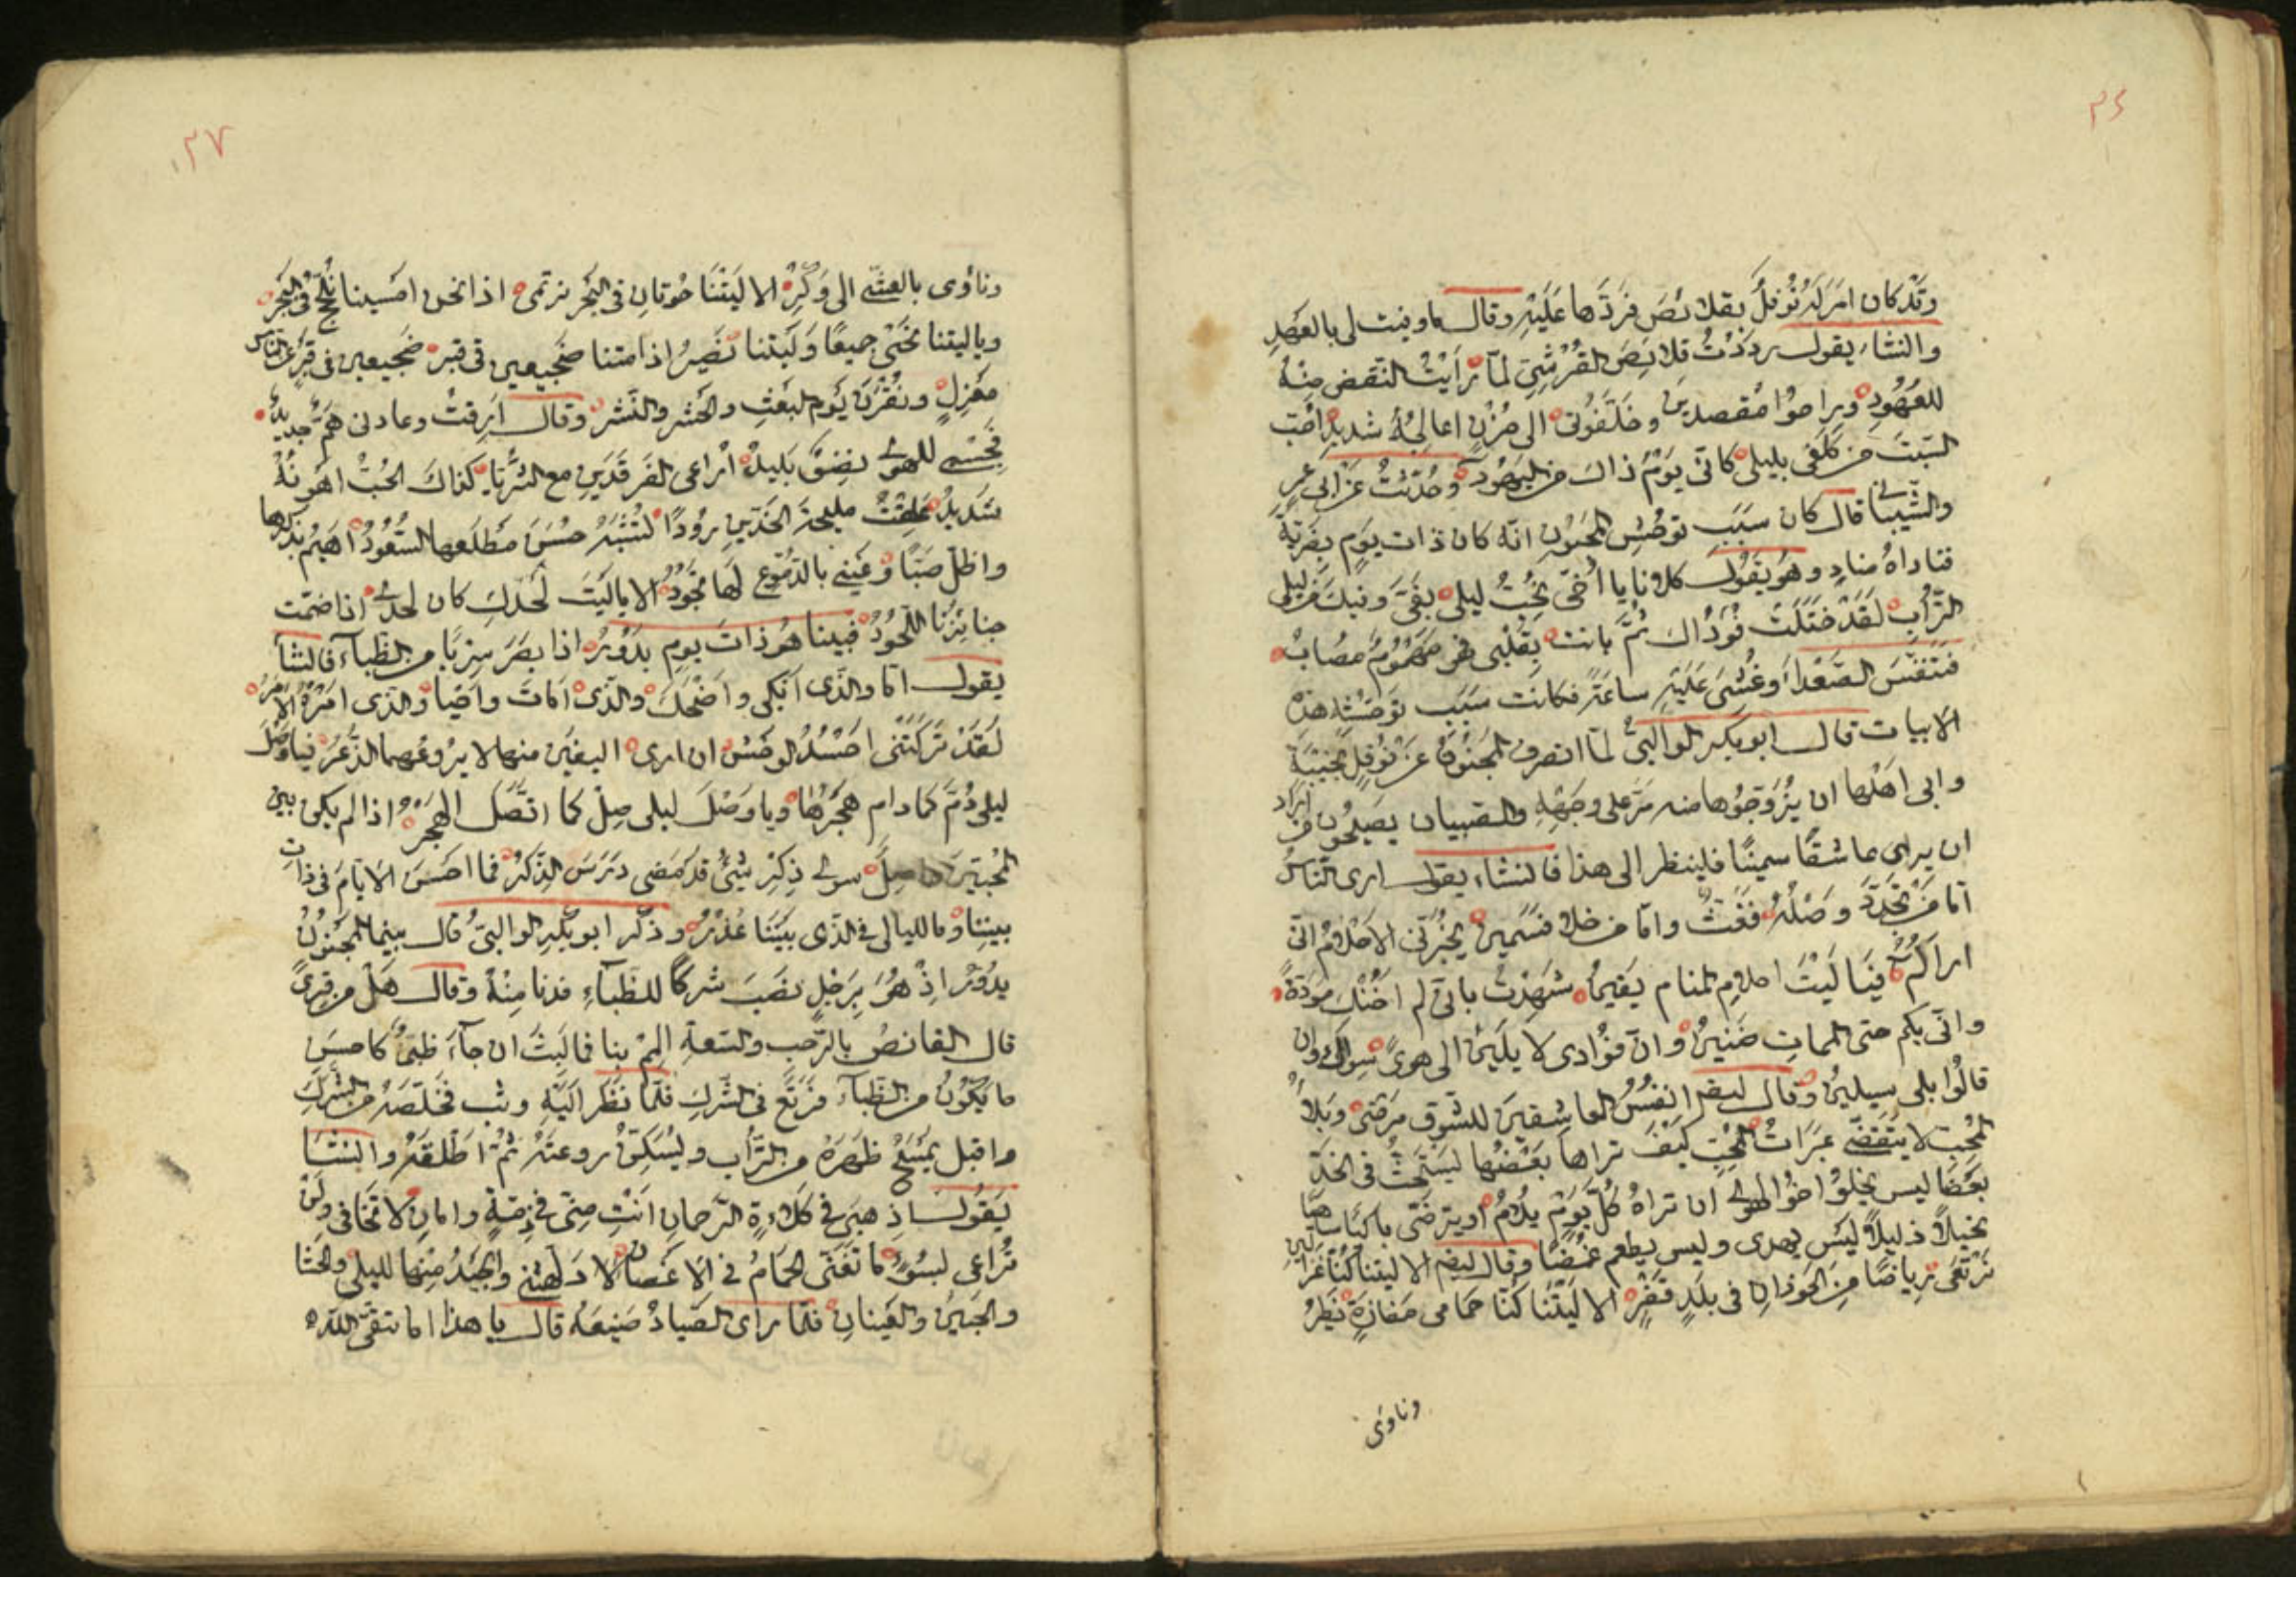 ٢٦
وقد كان امر له نوفل بقلائص فردها عليه وقال ما وفيت لى بالعهد
والنشاء يقول رددت قلائص القرشى لمّا رأيت النقض منه
للعهود وراحوا مقصدين وخلّفونى الى حزن اعالجه شديد احب
السبت من كلفى بليلى كانّى يوم ذاك من اليهود وحدّثت عن ابى عمر
والشيبانى قال كان سبب توحش المجنون انّه كان ذات يوم بقرية
فناداه مناد وهو يقول كلانا يا أخىّ يحبّ ليلى بفىّ وفيك من ليلى
التراب لقد ختلت فؤادك ثمّ بانت بقلبى فهو مهموم مصاب
فتنفس الصعداء وغشى عليه ساعة فكانت سبب توحشه هذه
الابيات قال ابو بكر الوالبىّ لمّا انصرف المجنون عن نوفل بخيبة
وابى اهلها ان يزوّجوها منه مرّ على وجهه والصبيان يصيحون من اراد
ان يرى عاشقا سمينا فلينظر الى هذا فالنشاء يقول ارى الناس
امّا من تجدّد وصله فغثّ وامّا من خلا فسمين يخبرنى الاحلام انّى
اراكم فيا ليت احلام المنام يقين شهدت بانّى لم اخنك مودة
وانّى بكم حتى الممات ضنين وانّ فؤادى لا يلين الى هوى سواك وان
قالوا بلى سيلين وقال ايضا انفس العاشقين للشوق مرضى وبلاء
المحب لا يتقضّى عبرات المحب كيف تراها بعضها يستحث فى الخد
بعضا ليس يخلو اخو الهوى ان تراه كل يوم يلام او يترضّى باكيا ساهيا
نحيلا ذليلا ليس يهدى وليس يطعم غمضا وقال ايضا الا ليتنا كنّا غزالين
نرتعى رياضا من الحوذان فى بلد قفر الا ليتنا كنّا حمامى مفازة نطير
وناوى
٢٧
وناوى بالعشى الى وكر الا ليتنا حوتان فى البحر نرتمى اذا نحن امسينا نلجّ فى البحر
ويا ليتنا نحيى جميعا وليتنا نصير اذا متنا ضجيعين فى قبر ضجيعين فى قبر عن الناس
معزل ونقرن يوم البعث والحشر والنشر وقال ارقت وعادنى همّ جديد
فجسمى للهوى نضو بليد اراعى الفرقدين مع الثريا كذاك الحب اهونه
شديد علقت مليحة الخدين رودا تشبه حسن مطلعها السعود اهيم بذكرها
واظل صبّا وعينى بالدموع لها تجود الا يا ليت لحدك كان لحدى اذا ضمّت
جنائزنا اللحود فبينا هو ذات يوم يدور اذا بصر سربا من الظباء فالنشأ
يقول اما والذى ابكى واضحك والذى امات واحيا والذى امره الامر
لقد تركتنى احسد الوحش ان ارى اليفين منها لا يروعهما الذعر فيا وصل
ليلى دم كما دام هجرها ويا وصل ليلى صل كما اتصل الهجر اذا لم يكن بين
المحبين حاصل سوى ذكر شئ قد مضى درس الذكر فما احسن الايام فى ذات
بيننا وما لليالى فى الذى بيننا عذر وذكر ابو بكر الوالبىّ قال بينما المجنون
يدور اذ هو برجل نصب شركا للظباء فدنا منه وقال هل من قرى
قال القانص بالرحب والسعة المم بنا فما لبث ان جاء ظبى كاحسن
ما يكون من الظباء فرتع فى الشرك فلمّا نظر اليه وثب فخلّصه من الشرك
واقبل يمسح ظهره من التراب ويسكن روعته ثم اطلقه والنشا
يقول اذهبى فى كلاءة الرحمان انت منّى فى ذمة وامان لا تخافى ولن
تراعى لسوء ما تغنّى الحمام فى الاغصان لا دلهتنى والجيد منها لليلى والحشا
والجبين والعينان فلمّا راى الصياد صنيعه قال يا هذا اما تتقى الله